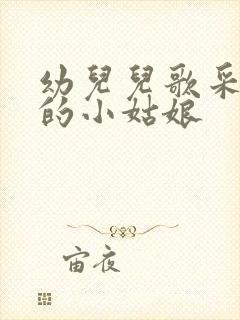 幼兒兒歌采
的小姑娘
宙夜